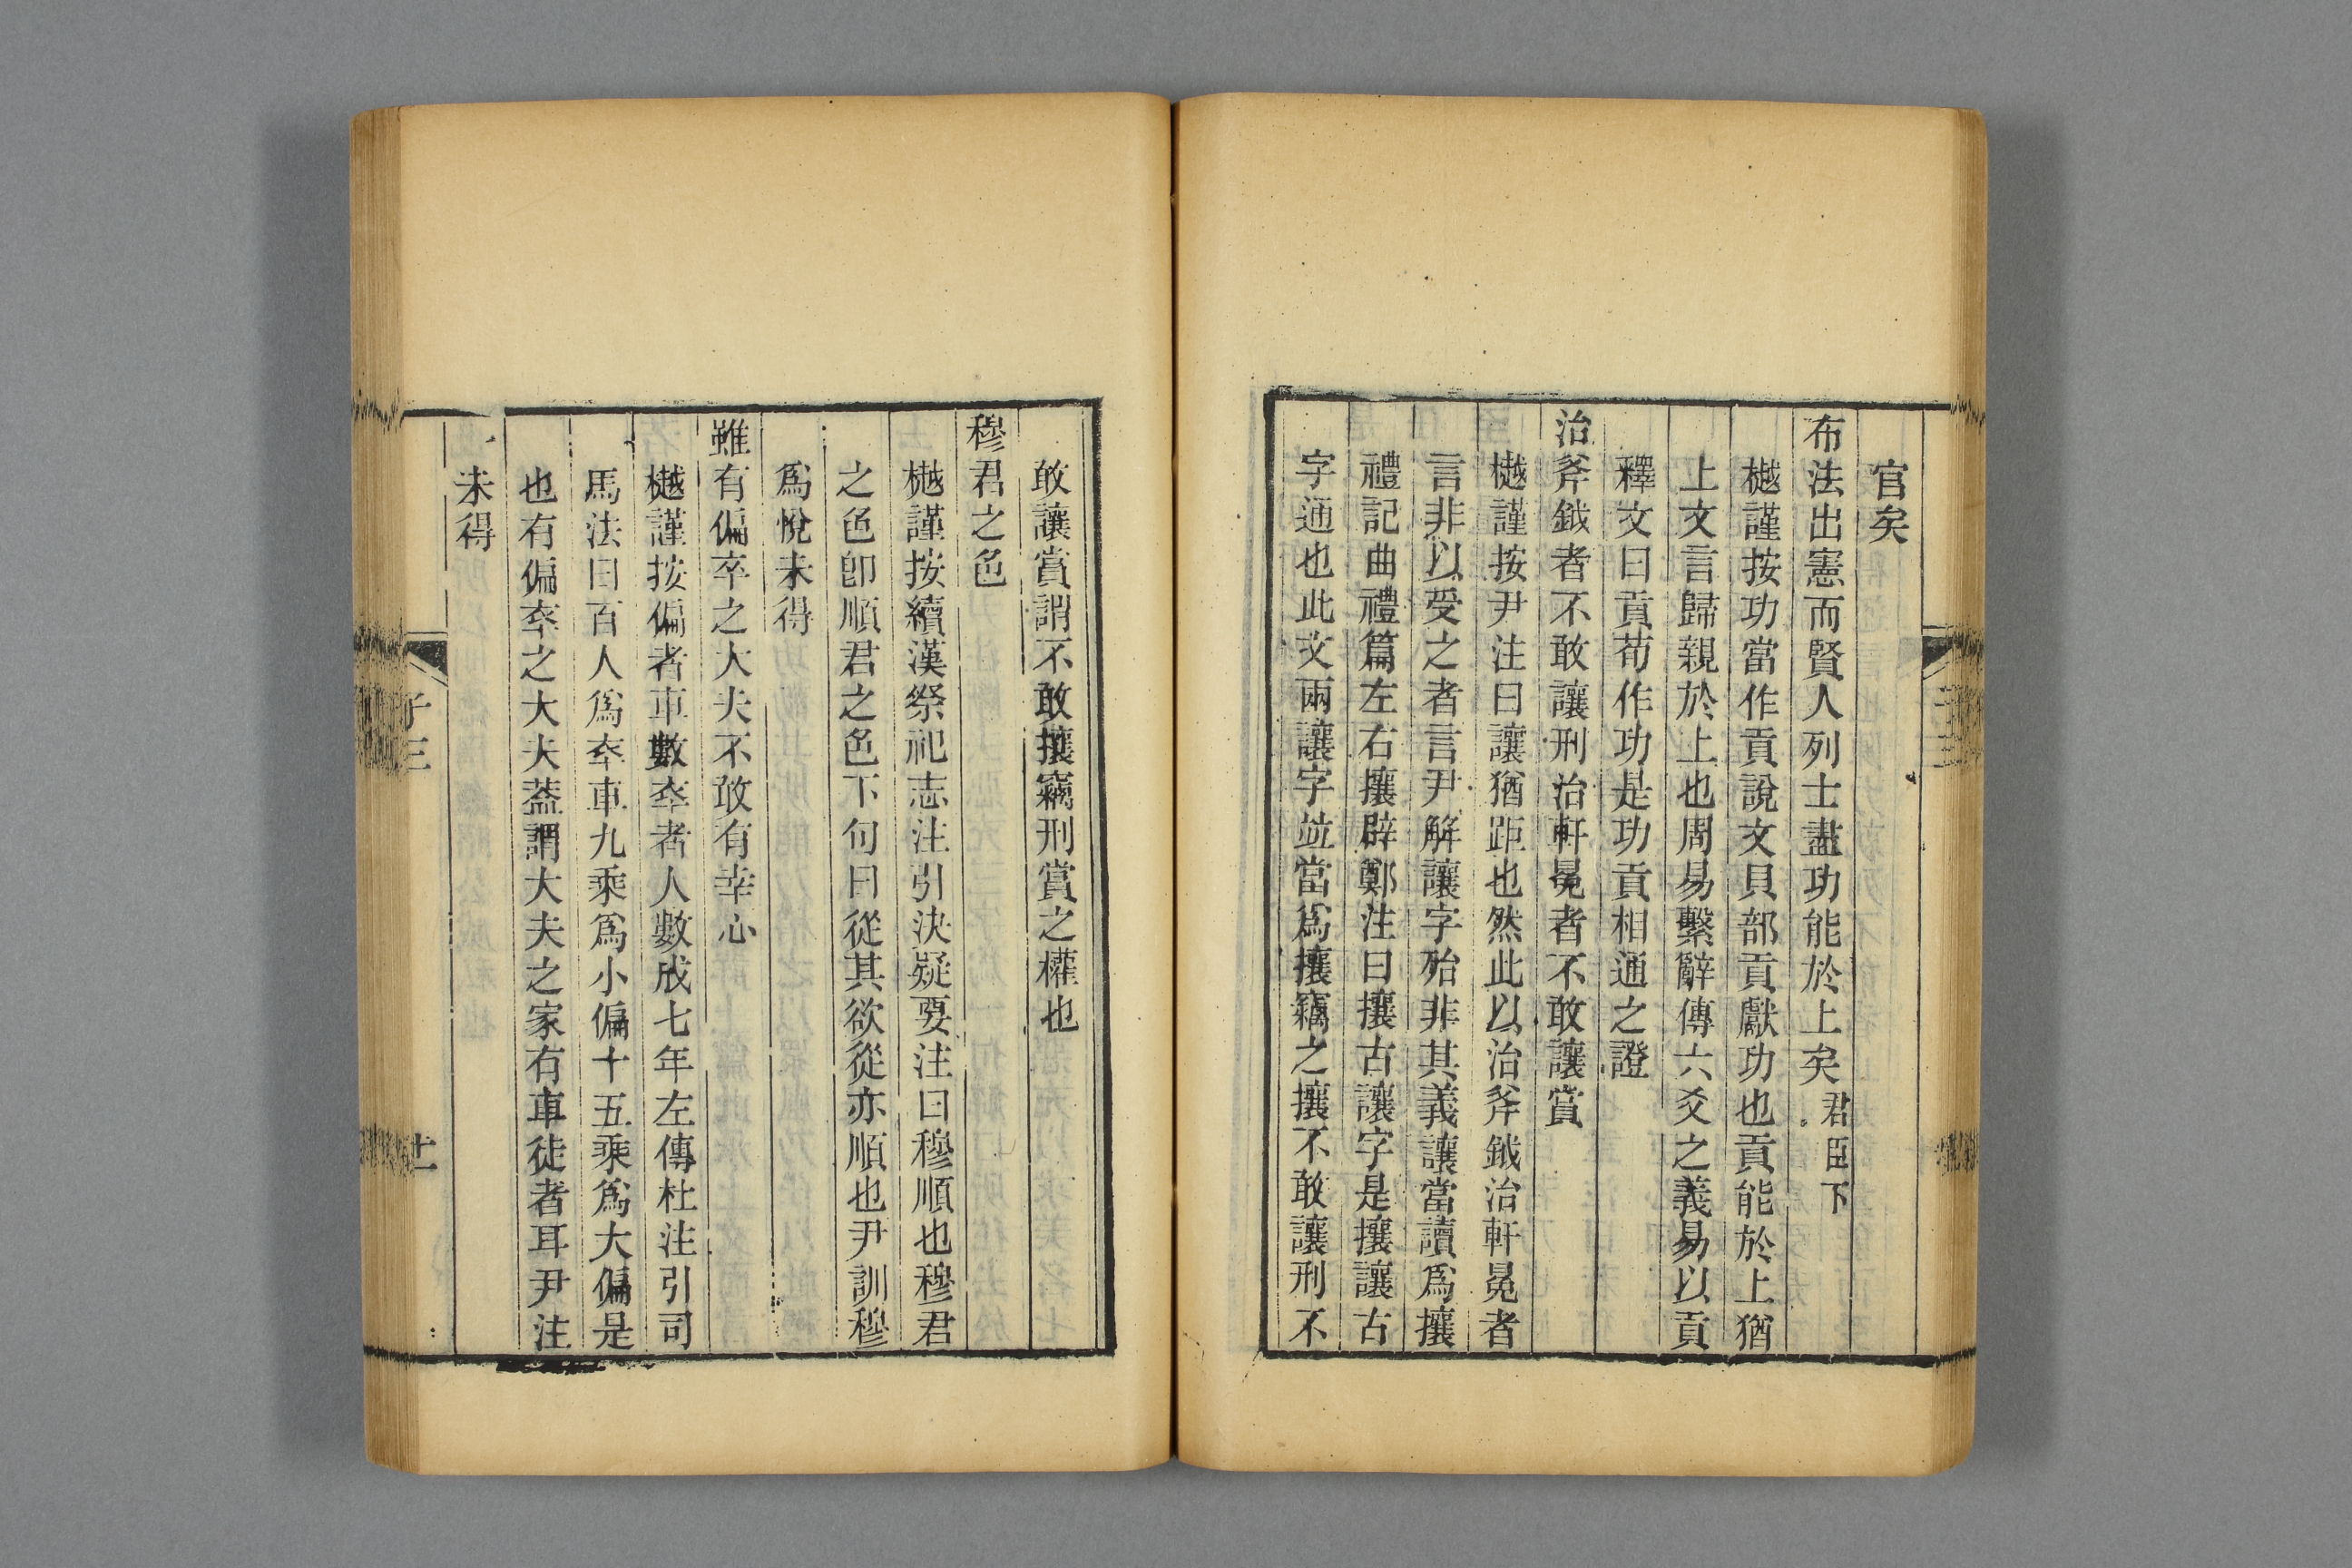 官矣
布法出憲而賢人列士盡功能於上矣君臣下
樾謹按功當作貢說文貝部貢獻功也貢能於上猶
上文言歸親於上也周易繫辭傳六爻之義易以貢
釋文曰貢荀作功是功貢相通之證
治斧鉞者不敢讓刑治軒冕者不敢讓賞
樾謹按尹注曰讓猶距也然此以治斧鉞治軒冕者
言非以受之者言尹解讓字殆非其義讓當讀爲攘
禮記曲禮篇左右攘辟鄭注曰攘古讓字是攘讓古
字通也此文兩讓字竝當爲攘竊之攘不敢讓刑不
敢讓賞謂不敢攘竊刑賞之權也
穆君之色
樾謹按續漢祭祀志注引決疑要注曰穆順也穆君
之色卽順君之色下句曰從其欲從亦順也尹訓穆
爲悅未得
雖有偏卒之大夫不敢有幸心
樾謹按偏者車數卒者人數成七年左傳杜注引司
馬法曰百人爲卒車九乘爲小偏十五乘爲大偏是
也有偏卒之大夫葢謂大夫之家有車徒者耳尹注
未得
子三
十一